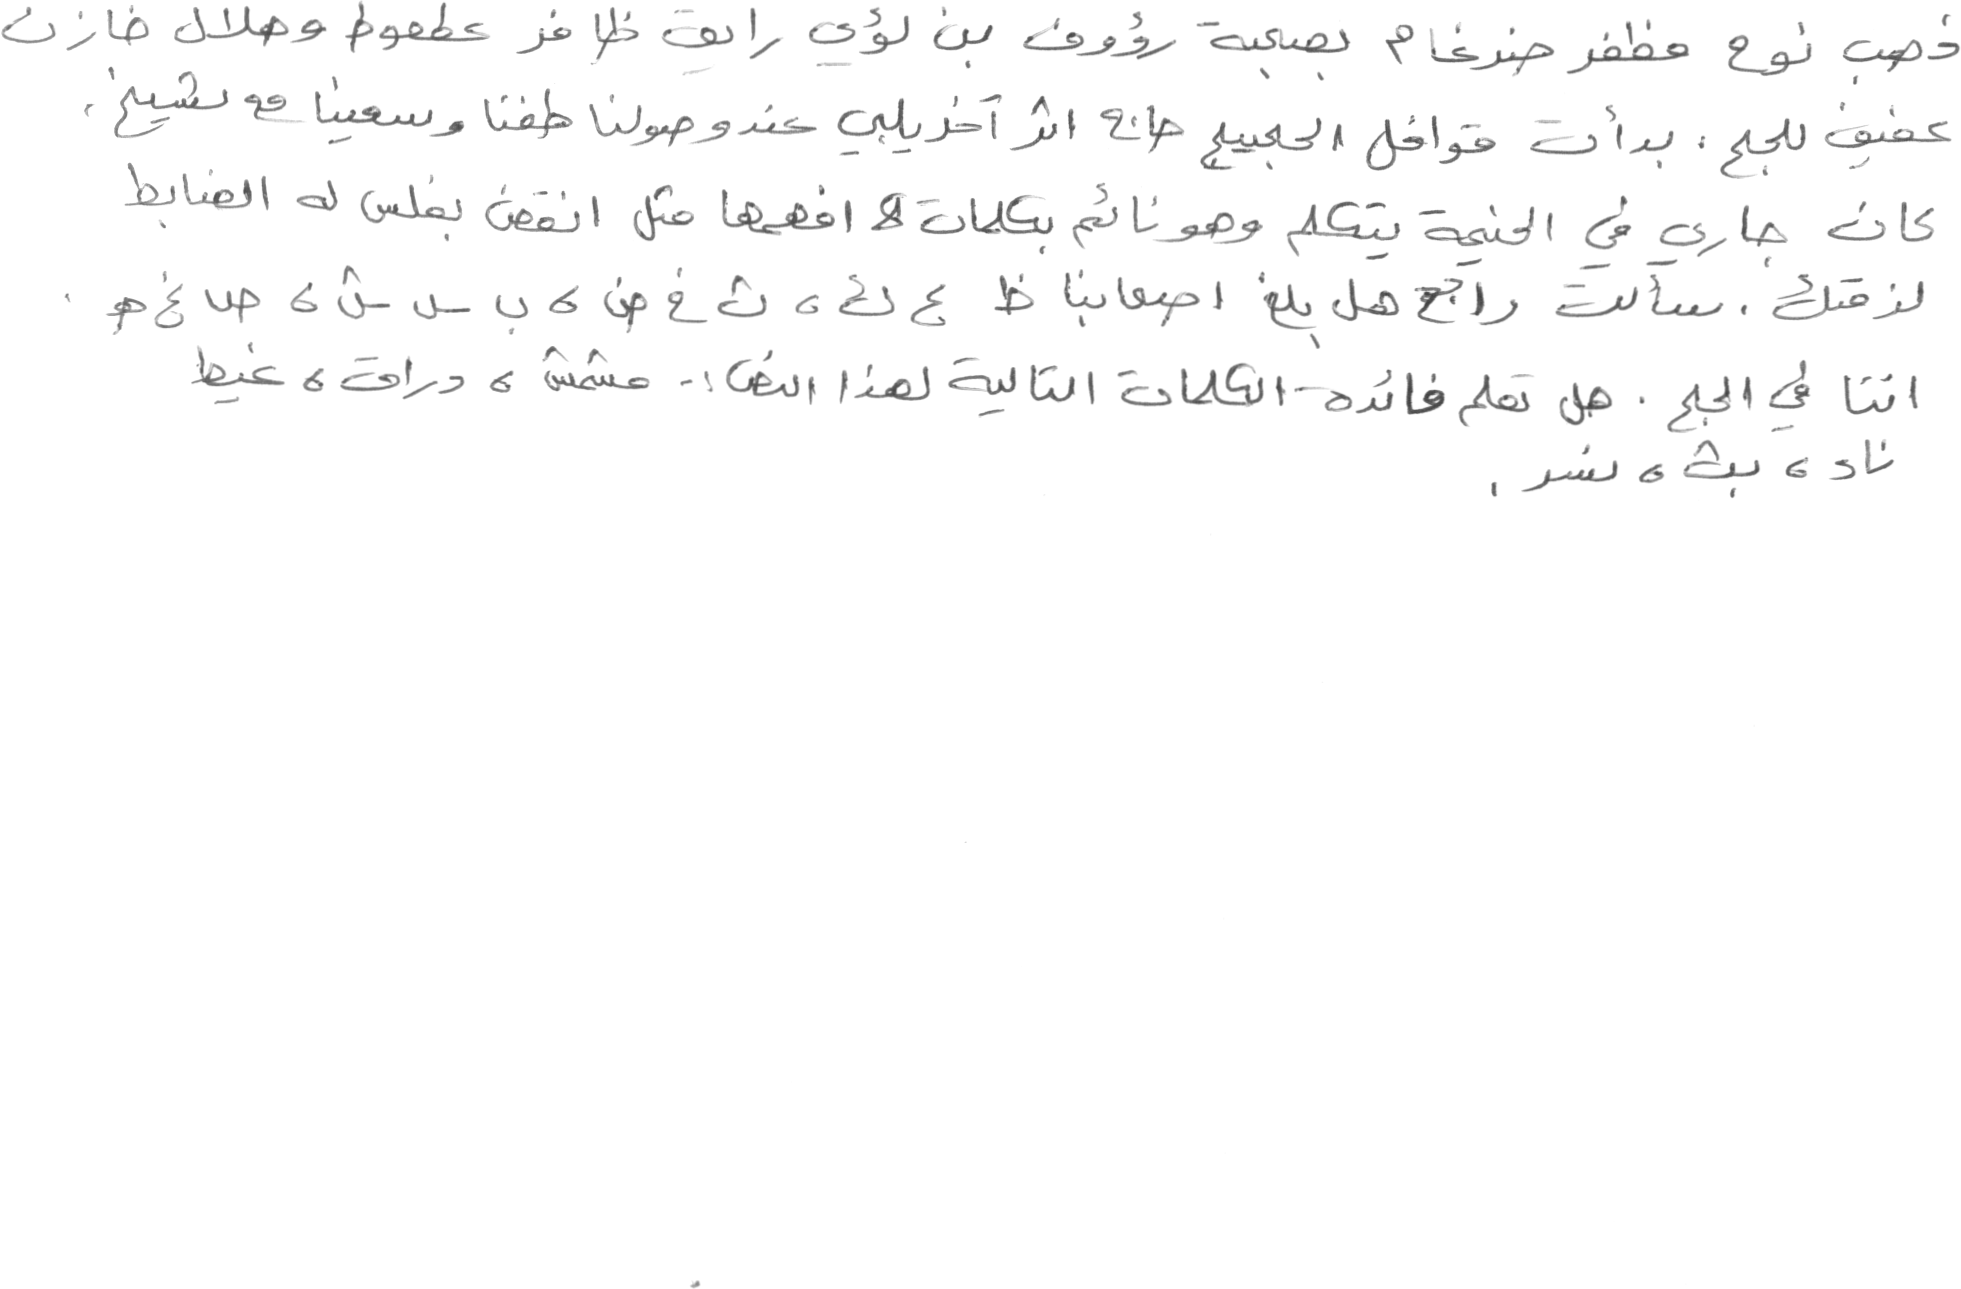 ذهب نوح مظفر ضرغام بصحبة رؤوف بن لؤي رايق ظافر عطعوط وهلال خازن
عفيف للحج . بدأت قوافل الحجيج اثر آخر يلبي عند وصولنا طفنا وسعينا مع شيخ .
كان جاري في الخيمة يتكلم وهو نائم بكلمات لا افهمها مثل انقض بغلس له الضابط
لزقتك . سألت راجح هل بلغ اصحابنا ظ ع ك ، ث غ ض ، ب س ش ، ص غ هـ .
اننا في الحج . هل تعلم فائده الكلمات التالية لهذا النص :- مشمش ، دراق ، غيظ
ناد ، بث ، نسر .